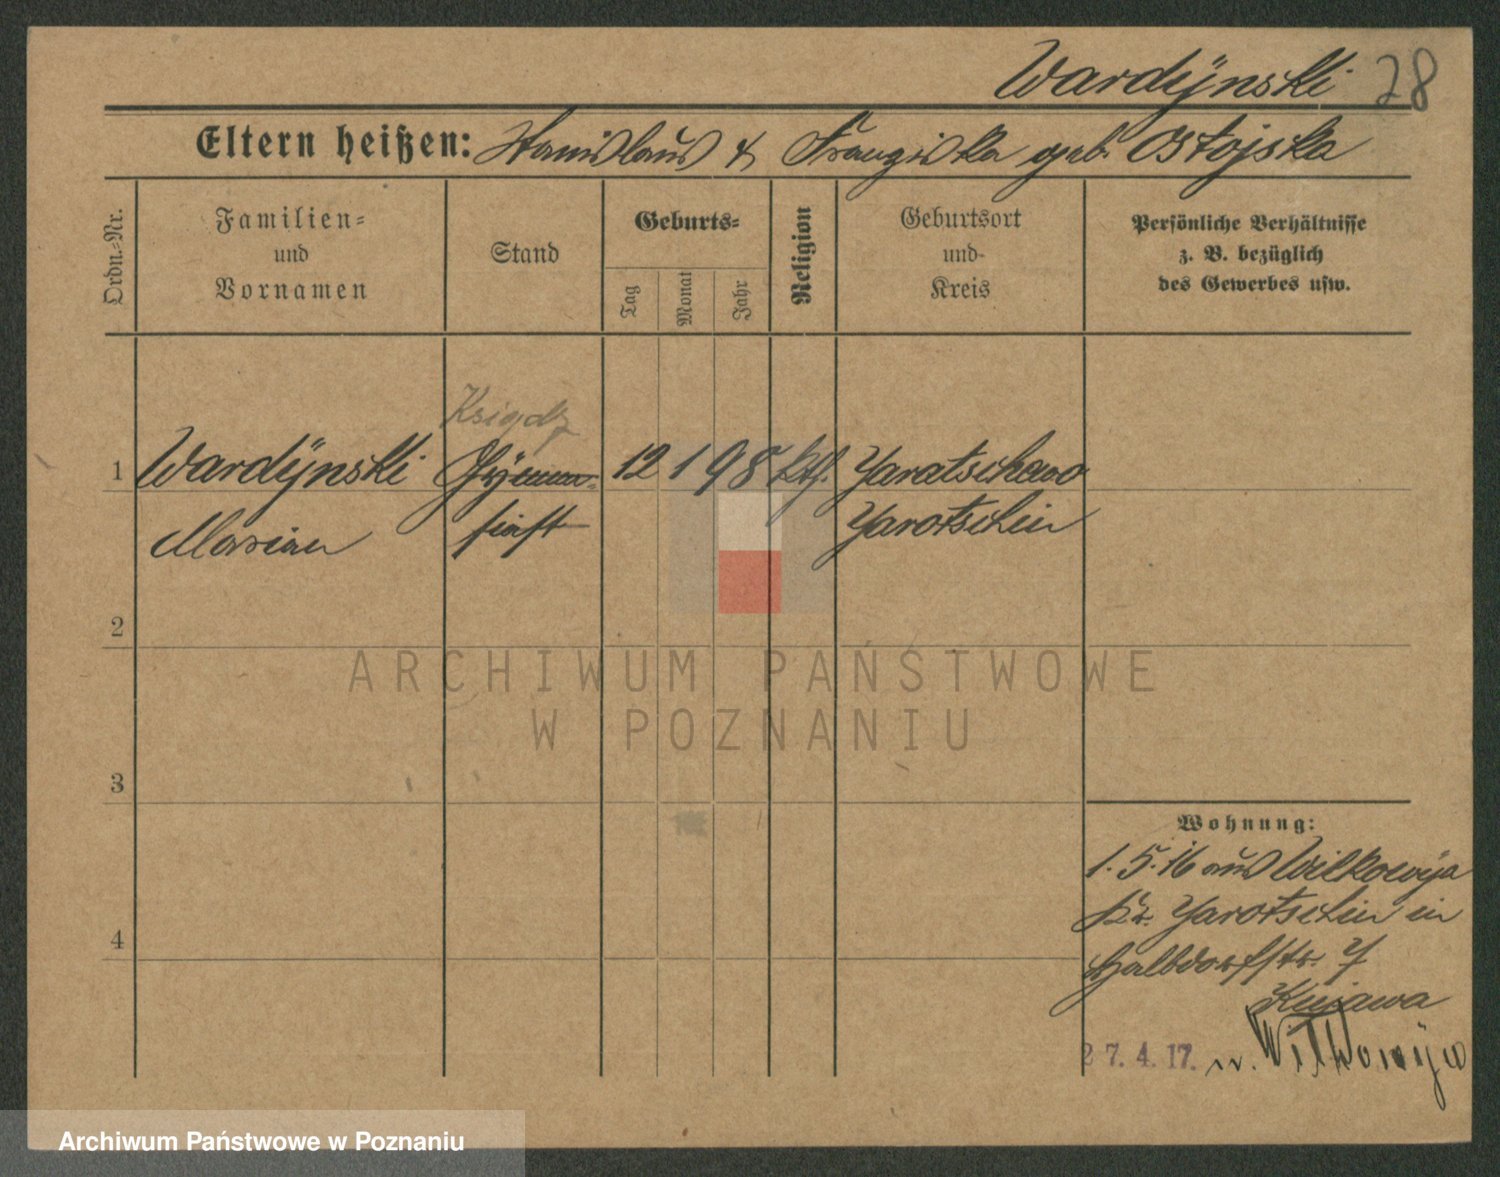 Wardÿnski 28
Eltern heißen: Stanislaus & Franziska geb. Ostojska
Ordn.=Nr.
Familien=
und
Vornamen
Stand
Geburts=
Tag
Monat
Jahr
Religion
Geburtsort
und
Kreis
Persönliche Verhältnisse
z. B. bezüglich
des Gewerbes usw.
Ksiądz
1 Wardÿnski Gÿmna- 12 1 98 kth. Jaratschewo
Marian siast Jarotschin
2
ARCHIWUM PAŃSTWOWE
W POZNANIU
3
Wohnung:
1.5.16 aus Wilkowÿa
Kr. Jarotschin in
4
Halbdorfstr. 7
Kujawa
27.4.17. n. Wilkowÿa
Archiwum Państwowe w Poznaniu